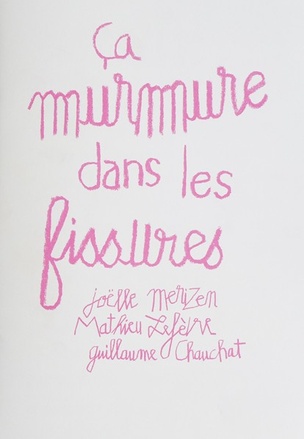 Ça
murmure
dans les
fissures
joëlle Merizen
Mathieu Lefèvre
guillaume Chauchat